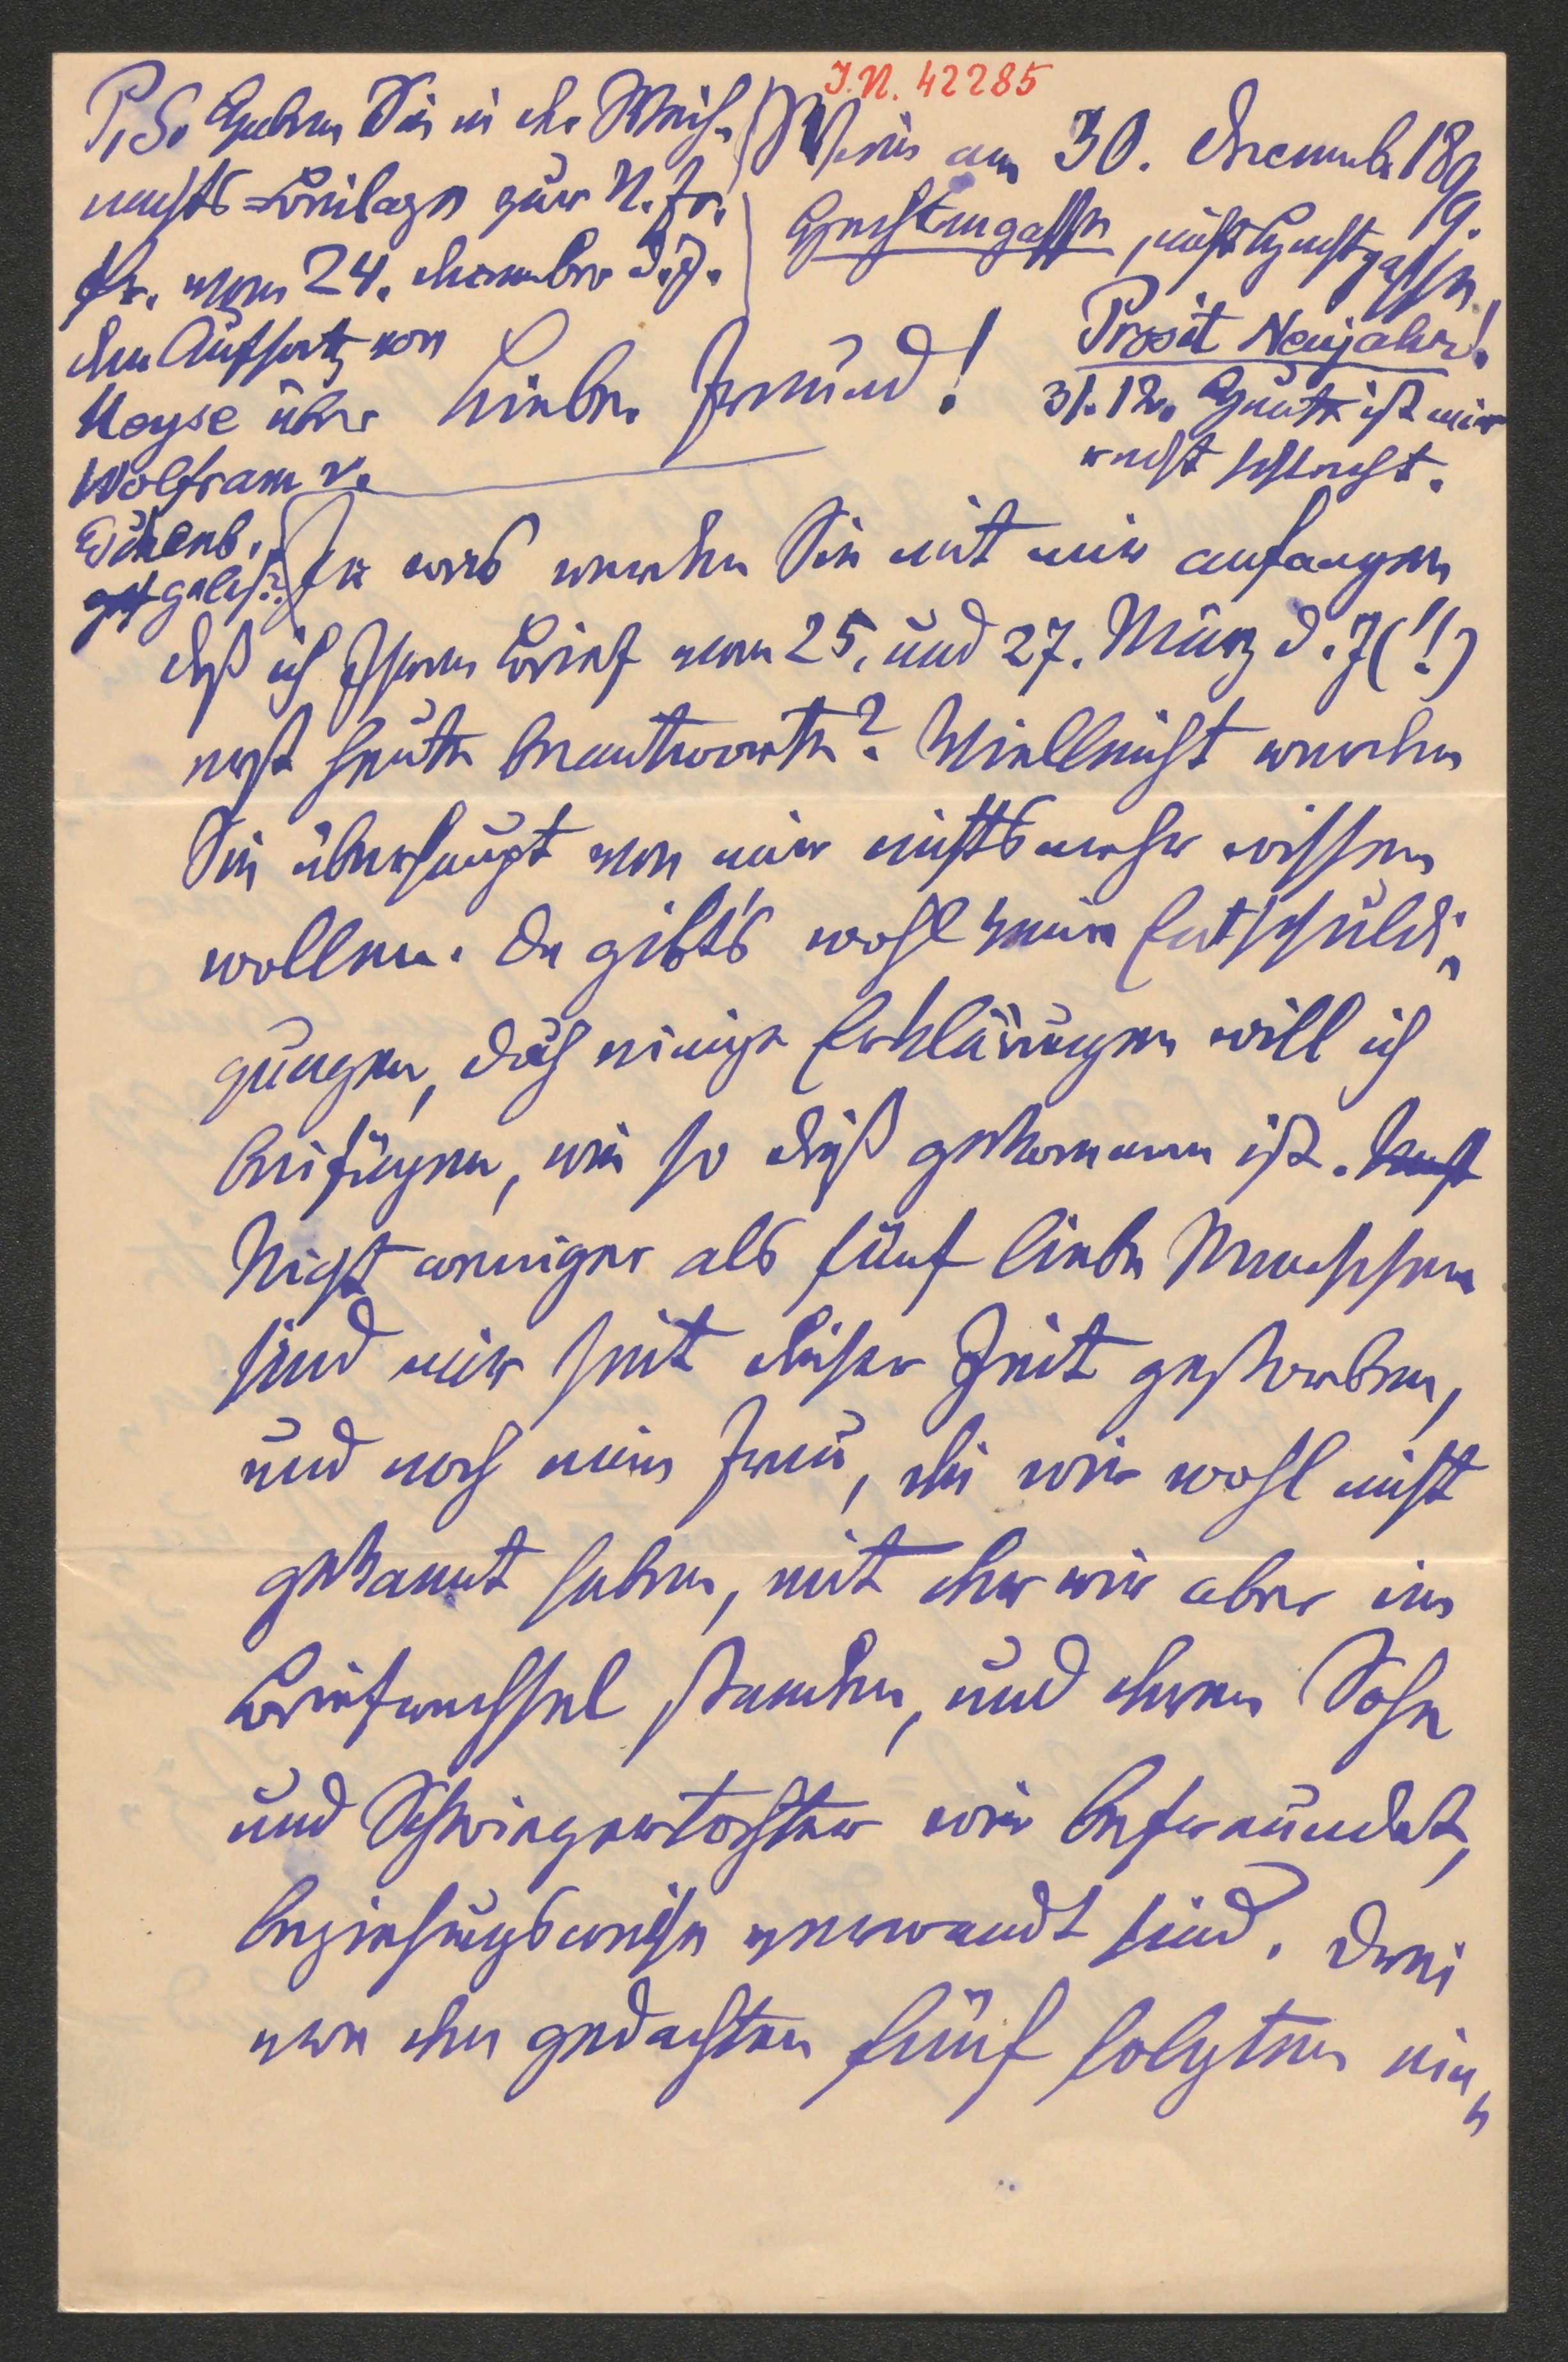 J.N. 42285
P.S. Haben Sie in der Weih-
nachts-Beilage zur N. fr.
Pr. vom 24. December d. J.
den Aufsatz von
Heyse über
Wolfram v.
Eschenb.
gelesen?
Wien am 30. December 1899.
Hechtengasse, nicht Hechtgasse.
Prosit Neujahr!
31.12. Heute ist mir
recht schlecht.
Lieber Freund!
Ja was werden Sie mit mir anfangen
daß ich Ihren Brief vom 25. und 27. März d. J (!!)
erst heute beantworte? Vielleicht werden
Sie überhaupt von mir nichts mehr wissen
wollen. Da gibt's wohl keine Entschuldi-
gungen, doch einige Erklärungen will ich
beifügen, wie so dieß gekommen ist.
Nicht weniger als fünf liebe Menschen
sind mir seit dieser Zeit gestorben,
und noch eine Frau, die wir wohl nicht
gekannt haben, mit der wir aber in
Briefwechsel standen, und deren Sohn
und Schwiegertochter wir befreundet,
beziehungsweise verwandt sind. Drei
von den gedachten fünf folgten ein-